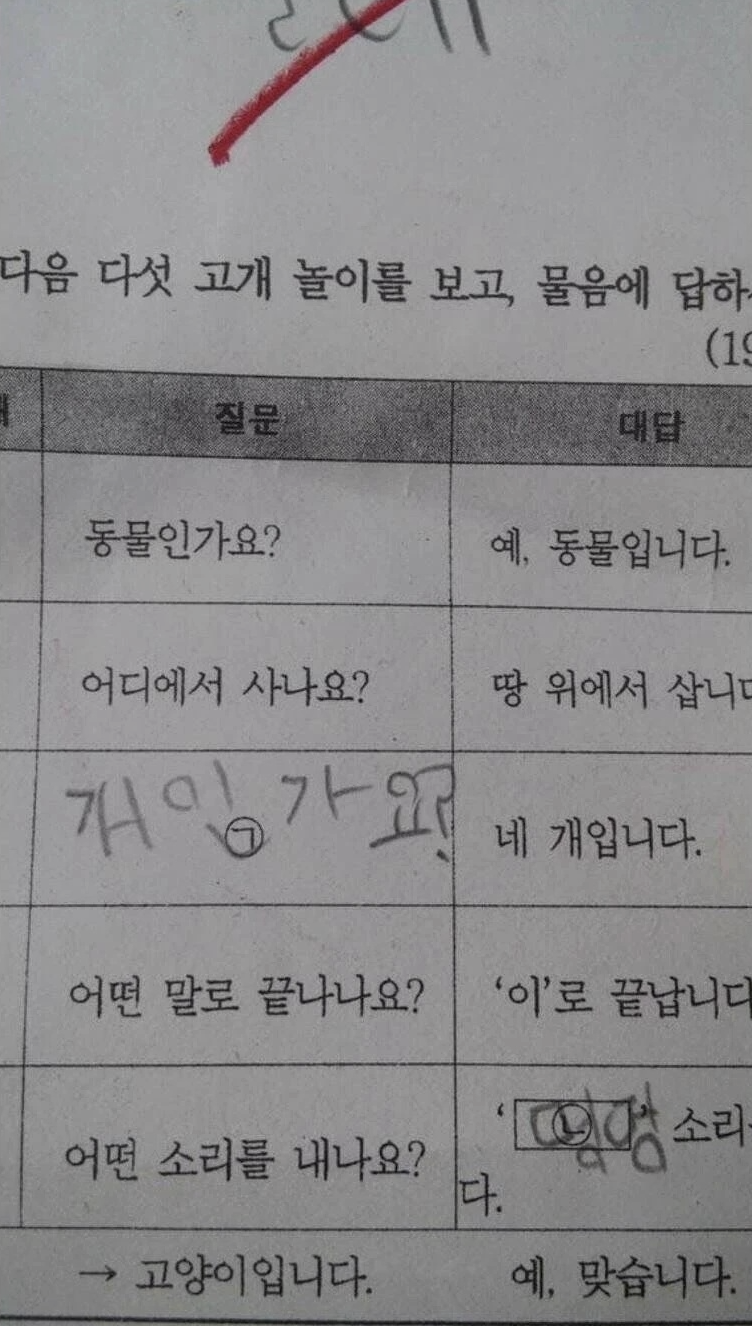 다음 다섯 고개 놀이를 보고, 물음에 답하
(19
질문 대답
동물인가요? 예, 동물입니다.
어디에서 사나요? 땅 위에서 삽니다
개인가요? ㉠ 네 개입니다.
어떤 말로 끝나나요? ‘이’로 끝납니다
어떤 소리를 내나요? ‘㉡ 멍멍’ 소리
다.
→ 고양이입니다. 예, 맞습니다.